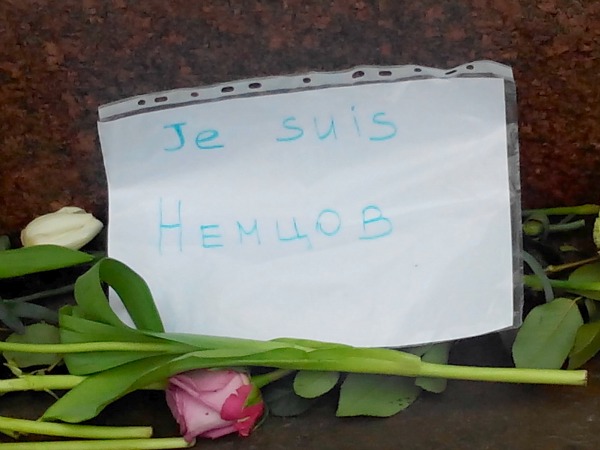 Je suis
Немцов